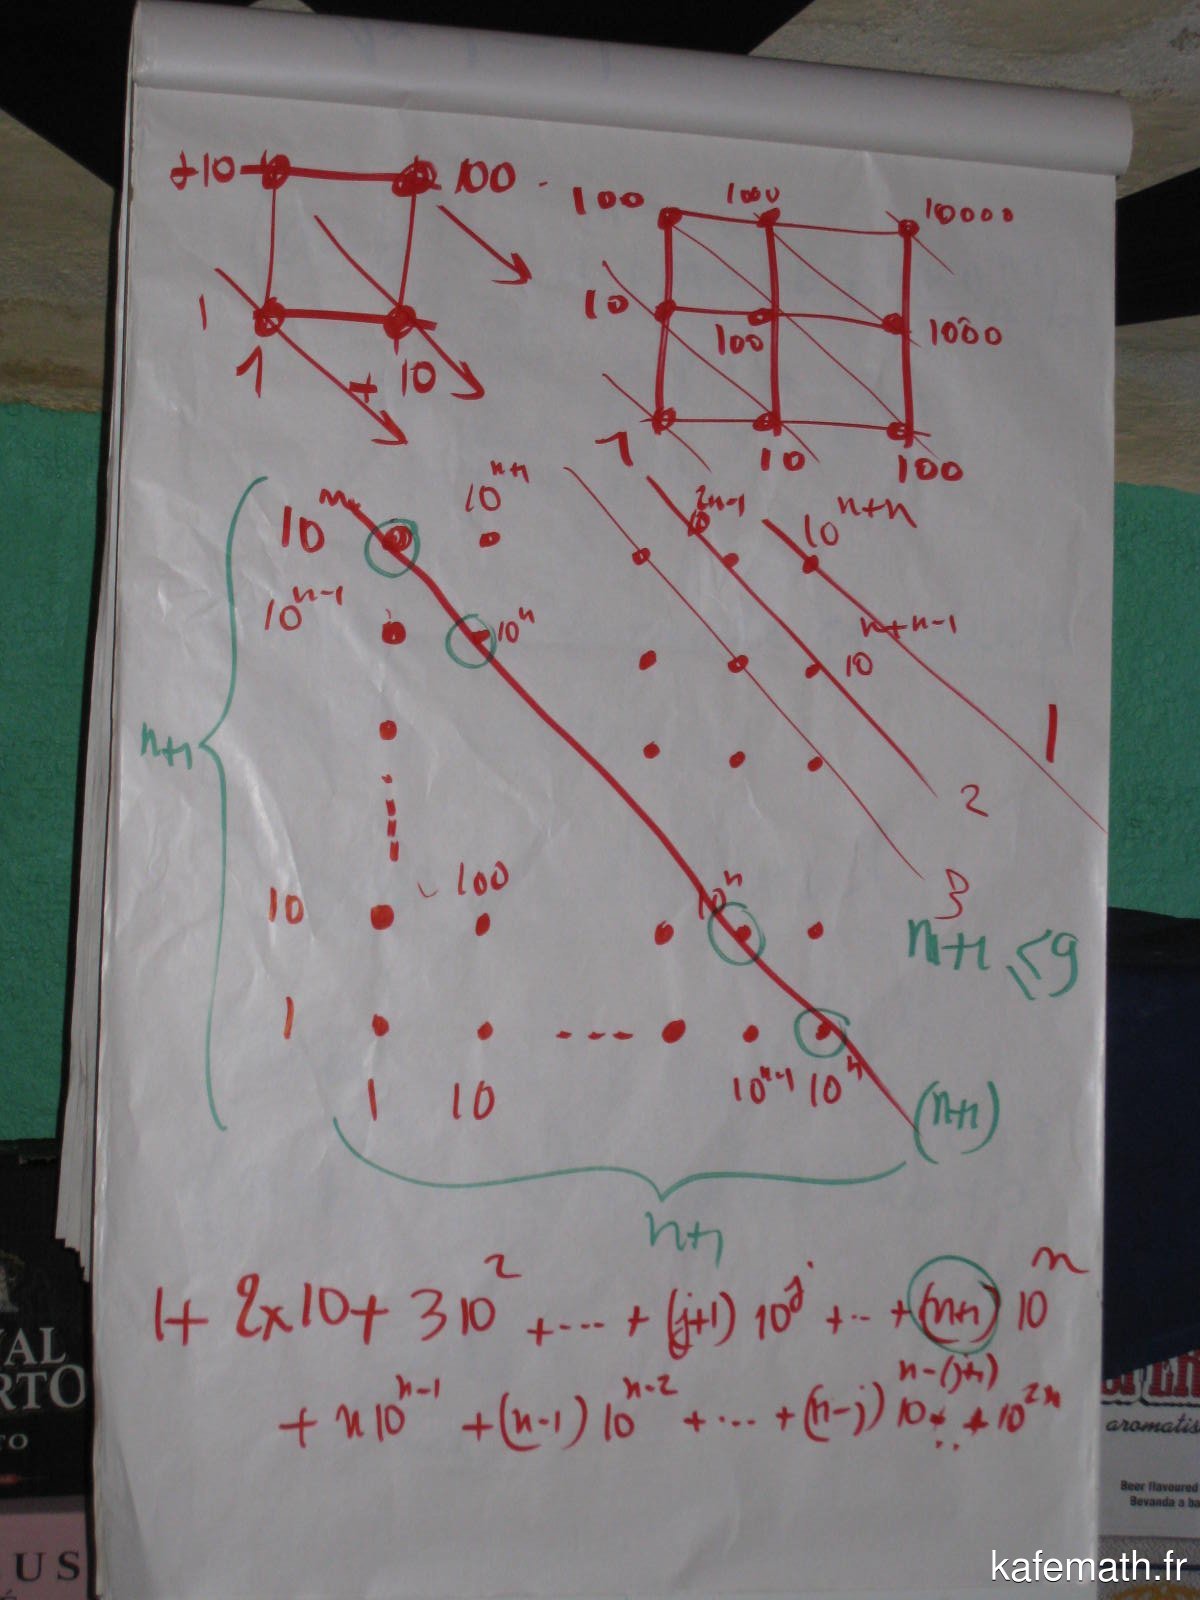 +10 100
1
1 + 10
100 1000 10000
10 100 1000
1 10 100
10^n 10^{n+1} 10^{2n-1} 10^{n+n}
10^{n-1} 10^n 10^{n+n-1}
n+1
1
2
3
10 100 10^n
n+1 ≤9
1
1 10 10^{n-1} 10^n
(n+1)
n+1
1+ 2x10+ 3 10^2 +---- + (j+1) 10^j +-- + (n+1) 10^n
+ n 10^{n-1} +(n-1) 10^{n-2} +--- +(n-j) 10^{n-(j+1)} .. + 10^{2n}
VAL
RTO
TO
US
aromatis
Beer flavoured
Bevanda a ba
kafemath.fr